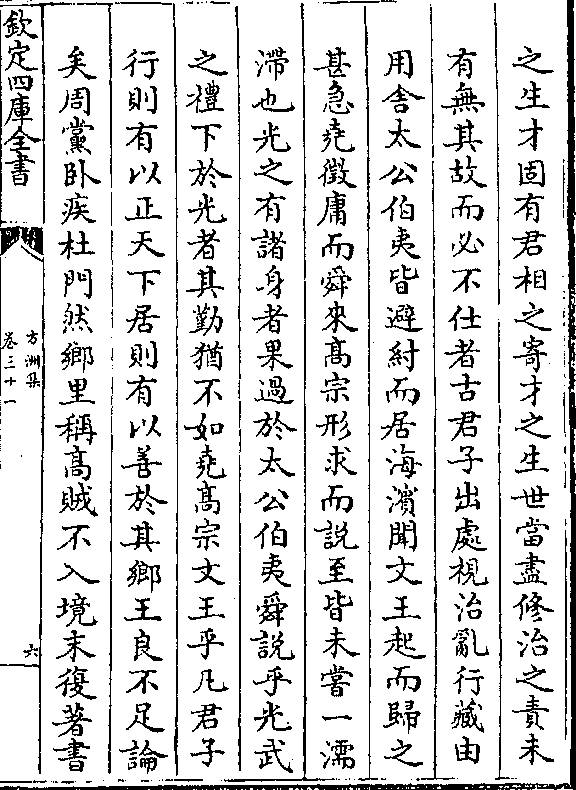 之生才固有君相之寄才之生世當盡修治之責未
有無其故而必不仕者古君子出處視治亂行藏由
用舍太公伯夷皆避紂而居海濱聞文王起而歸之
甚急堯徵庸而舜來高宗形求而説至皆未嘗一濡
滯也光之有諸身者果過於太公伯夷舜説乎光武
之禮下於光者其勤猶不如堯高宗文王乎凡君子
行則有以正天下居則有以善於其鄉王良不足論
矣周黨臥疾杜門然鄉里稱高賊不入境末復著書
欽定四庫全書
方洲集
卷三十一
六